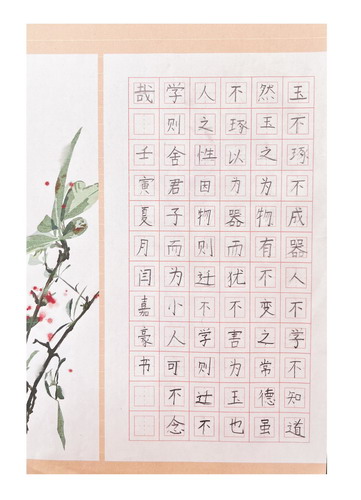 玉不琢不成器人不学不知道
然玉之为物有不变之常德虽
不琢以为器而犹不害为玉也
人之性因物则迁不学则迁不
学则舍君子而为小人可不念
哉
壬寅夏月闫嘉豪书